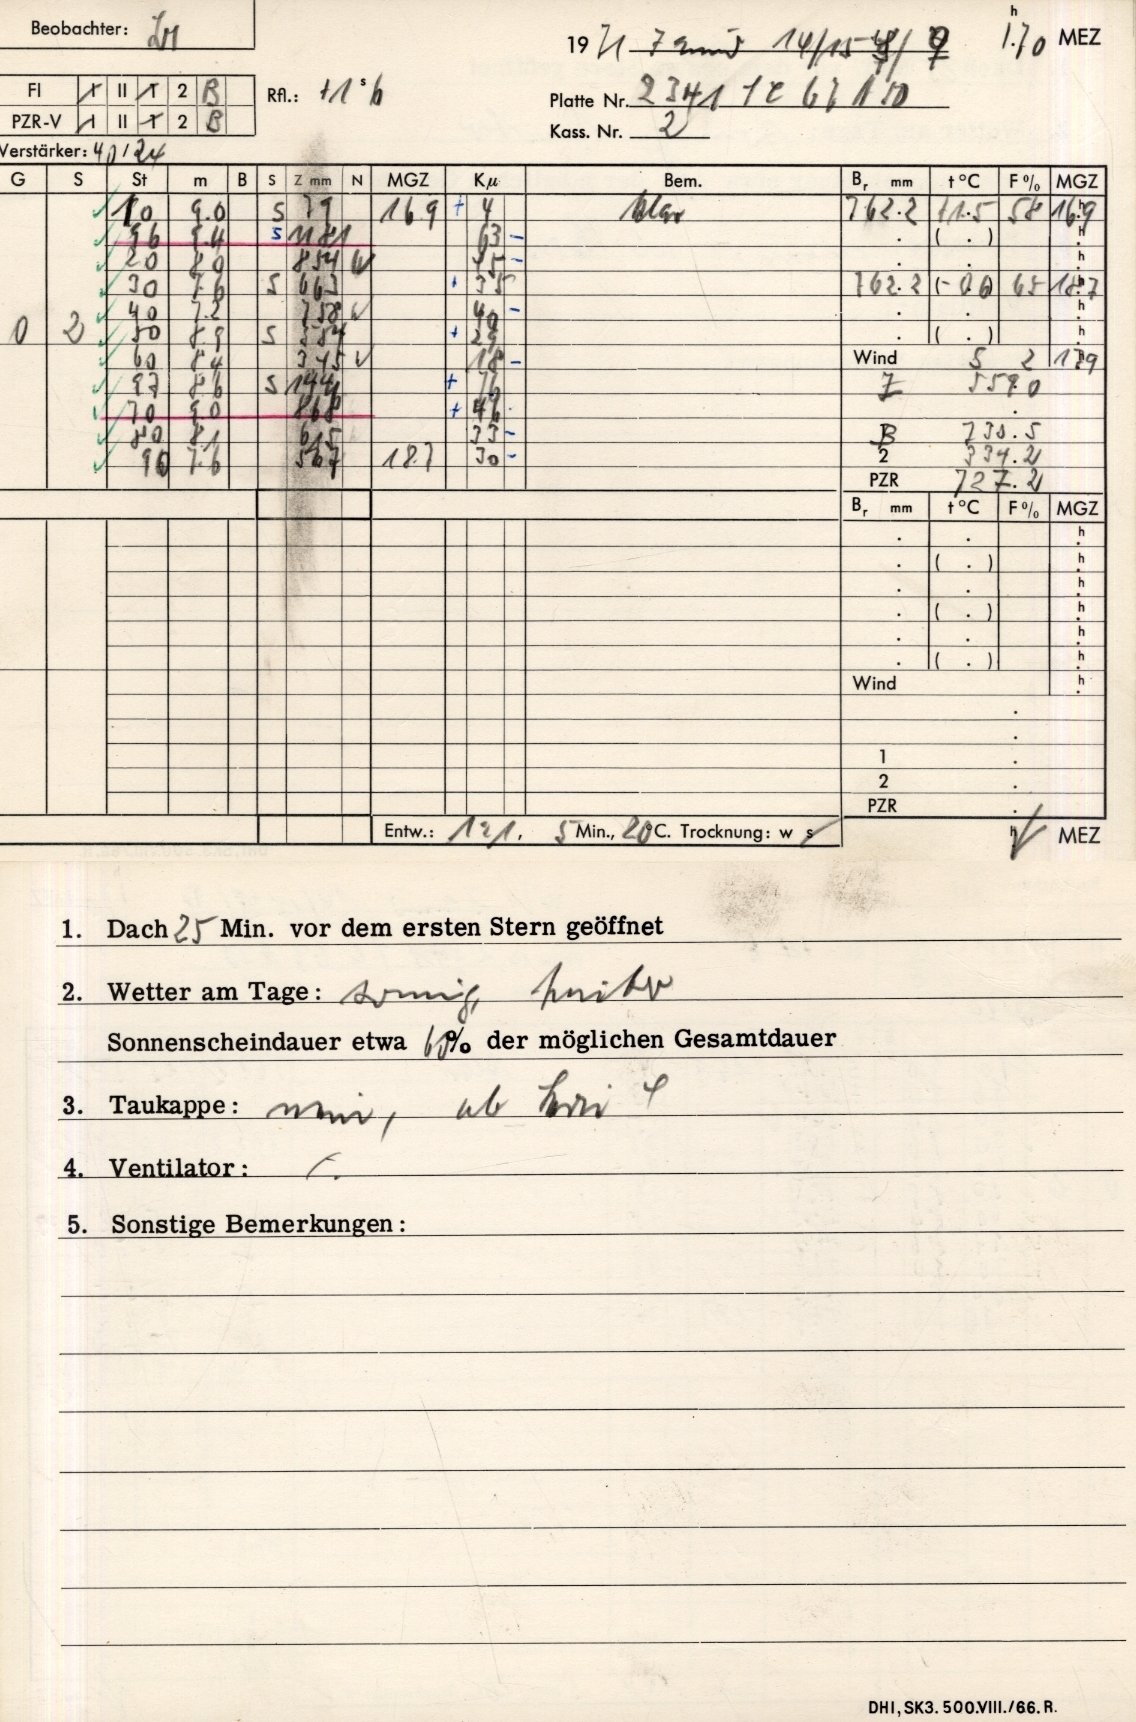 Beobachter:
19 71 14/15 h MEZ
FI I II 1 2 B
Rfl.: +1 s 6
Platte Nr. 2341
PZR-V I II 1 2 B
Kass. Nr. 2
Verstärker: 40/24
G S St m B S Z mm N MGZ Kμ Bem. Br mm t °C F % MGZ
10 9.0 S 79 16.9 + 4 klar 762.2 +1.5 58 16.9
96 9.4 S 1181 63 - . ( . ) h
20 8.0 854 W 45 - . . h
30 7.6 S 663 + 35 762.2 (-0.0) 65 18.7
40 7.2 758 W 40 - . . h
0 2 50 8.9 S 354 + 29 . ( . ) h
60 8.4 345 W 18 - Wind S 2 17.9
97 8.6 S 1441 + 76 Z 559.0
70 9.0 868 + 46
80 8.1 615 33 - B 730.5
90 7.6 567 18.7 30 - 2 334.2
PZR 727.2
Br mm t °C F % MGZ
. . h
. ( . ) h
. . h
. ( . ) h
. . h
. ( . ) h
Wind h
.
.
1 .
2 .
PZR .
Entw.: 1+1, 5 Min., 20 °C. Trocknung: w s h MEZ
1. Dach 25 Min. vor dem ersten Stern geöffnet
2. Wetter am Tage: sonnig, heiter
Sonnenscheindauer etwa 60% der möglichen Gesamtdauer
3. Taukappe: nein, ab
4. Ventilator:
5. Sonstige Bemerkungen:
DHI, SK3. 500.VIII./66. R.